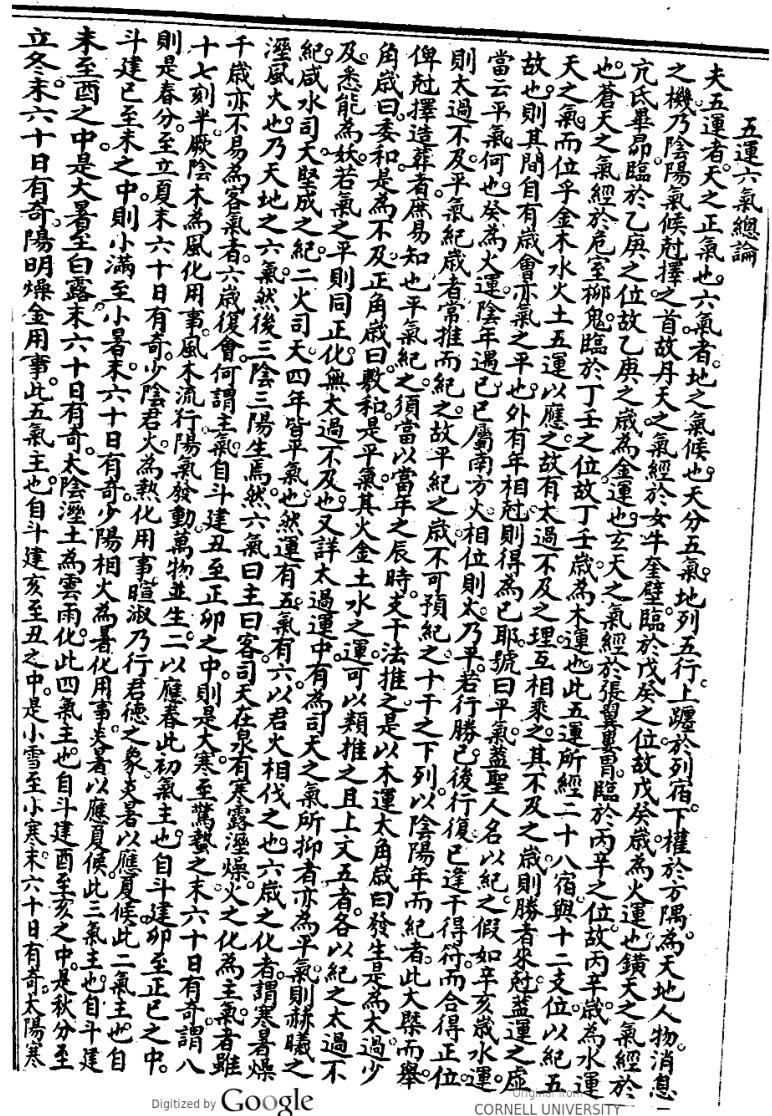 五運六氣總論
夫五運者。天之正氣也。六氣者。地之氣候也。天分五氣。地列五行。上躔於列宿。下權於方隅。為天地人物。消息
之機。乃陰陽氣候尅擇之首。故丹天之氣經於女牛奎壁。臨於戊癸之位。故戊癸歲為火運也。黅天之氣經於
亢氐畢昴。臨於乙庚之位。故乙庚之歲為金運也。玄天之氣經於張翼婁胃。臨於丙辛之位。故丙辛歲為水運
也。蒼天之氣經於危室柳鬼。臨於丁壬之位。故丁壬歲為木運也。此五運所經二十八宿。與十二支位。以紀五
天之氣。而位乎金木水火土五運以應之。故有太過不及之理。互相乘之。其不及之歲。則勝者來尅。蓋運之虛
故也。則其間自有歲會。亦氣之平也。外有年相尅。則得為已耶。號曰平氣。蓋聖人名以紀之。假如辛亥歲水運。
當云平氣何也。癸為火運。陰年遇巳。巳屬南方火。相位則太乃平。若行勝已後行復已。逢干得符。而合得正位。
則太過不及。平氣紀歲者。常推而紀之。故平紀之歲。不可預紀之。十干之下。列以陰陽年而紀者。此大槩而舉。
俾尅擇造葬者。庶易知也。平氣紀之。須當以當年之辰時。支干法推之。是以木運太角歲曰發生。是為太過。少
角歲曰委和。是為不及。正角歲曰敷和。是平氣。其火金土水之運。可以類推之。且上文五者。各以紀之太過不
及。悉能為妖。若氣之平。則同正化。無太過不及也。又詳太過運中。有為司天之氣所抑者。亦為平氣。則赫曦之
紀。咸水司天。堅成之紀。二火司天。四年皆平氣也。然運有五。氣有六。以君火相代之也。六歲之化者。謂寒暑燥
溼風火也。乃天地之六氣。然後三陰三陽生焉。然六氣曰主曰客。司天在泉。有寒露溼燥火之化為主氣者。雖
千歲亦不易。為客氣者。六歲復會。何謂主氣。自斗建丑至正卯之中。則是大寒至驚蟄之末。六十日有奇。謂八
十七刻半。厥陰木為風化用事。風木流行。陽氣發動。萬物並生。二以應春。此初氣主也。自斗建卯至正巳之中。
則是春分至立夏末。六十日有奇。少陰君火為熱化用事。暄淑乃行。君德之象。炎暑以應夏候。此二氣主也。自
斗建巳至未之中。則小滿至小暑末。六十日有奇。少陽相火為暑化用事。炎暑以應夏候。此三氣主也。自斗建
未至酉之中。是大暑至白露末。六十日有奇。太陰溼土為雲雨化。此四氣主也。自斗建酉至亥之中。是秋分至
立冬末。六十日有奇。陽明燥金用事。此五氣主也。自斗建亥至丑之中。是小雪至小寒末。六十日有奇。太陽寒
Digitized by Google
Original from
CORNELL UNIVERSITY